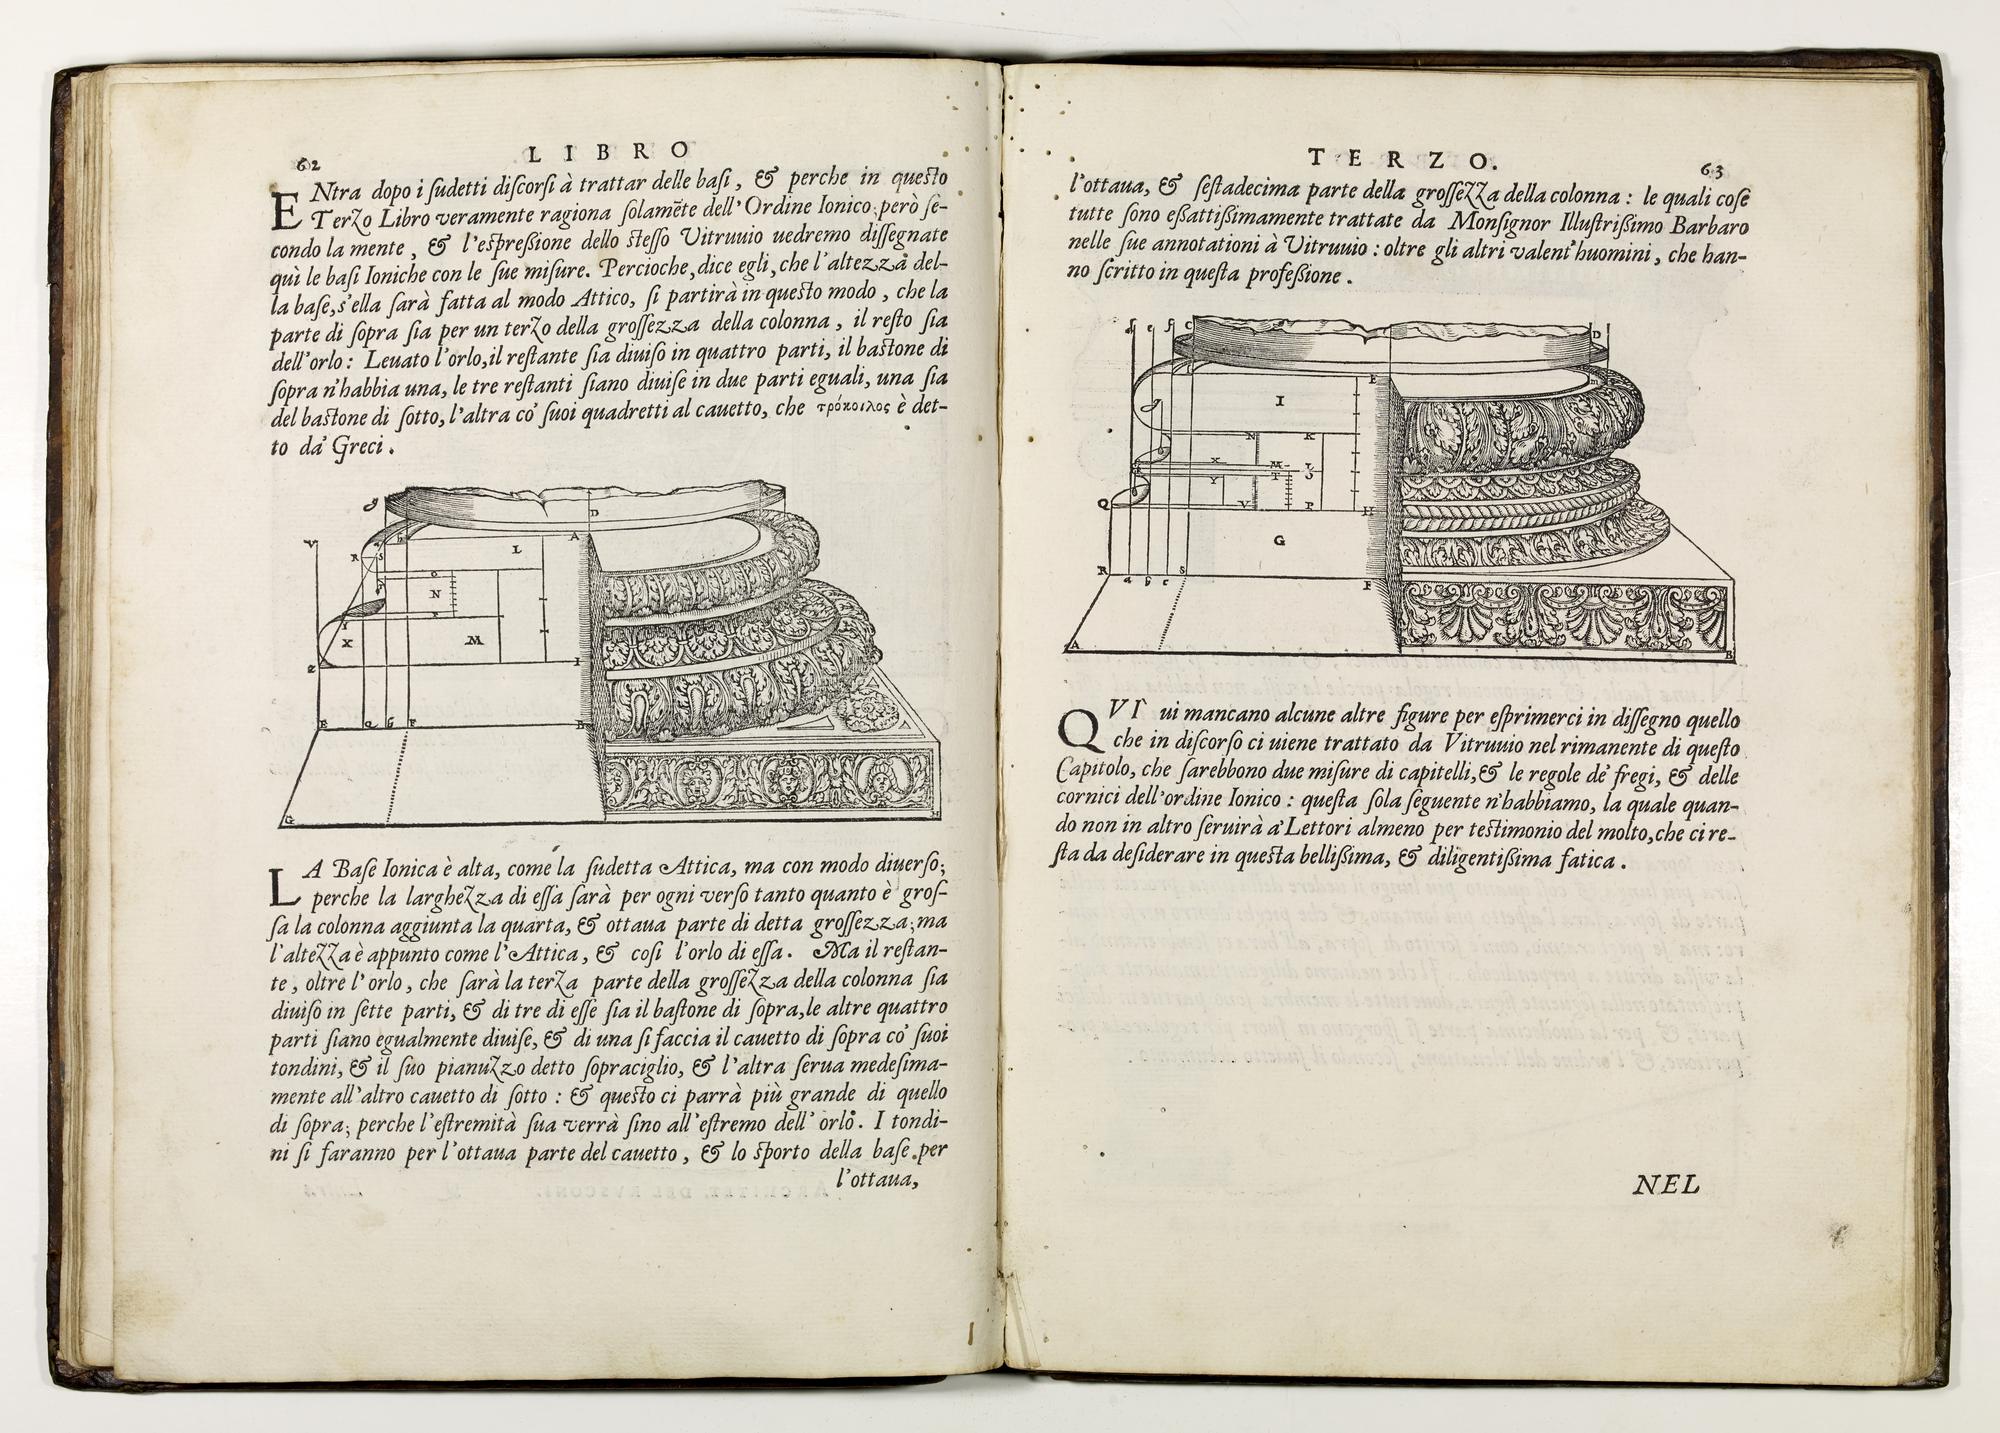 62
LIBRO
ENtra dopo i sudetti discorsi à trattar delle basi, & perche in questo
Terzo Libro veramente ragiona solamẽte dell'Ordine Ionico, però se-
condo la mente, & l'espressione dello stesso Vitruuio uedremo dissegnate
quì le basi Ioniche con le sue misure. Percioche, dice egli, che l'altezza del-
la base, s'ella sarà fatta al modo Attico, si partirà in questo modo, che la
parte di sopra sia per un terzo della grossezza della colonna, il resto sia
dell'orlo: Leuato l'orlo, il restante sia diuiso in quattro parti, il bastone di
sopra n'habbia una, le tre restanti siano diuise in due parti eguali, una sia
del bastone di sotto, l'altra co' suoi quadretti al cauetto, che τρόκοιλος è det-
to da' Greci.
g
D
V
A
L
R
a
h
S
O
N
P
X
M
I
E
a
b
F
B
G
H
LA Base Ionica è alta, come la sudetta Attica, ma con modo diuerso;
perche la larghezza di essa sarà per ogni verso tanto quanto è gros-
sa la colonna aggiunta la quarta, & ottaua parte di detta grossezza; ma
l'altezza è appunto come l'Attica, & cosi l'orlo di essa. Ma il restan-
te, oltre l'orlo, che sarà la terza parte della grossezza della colonna sia
diuiso in sette parti, & di tre di esse sia il bastone di sopra, le altre quattro
parti siano egualmente diuise, & di una si faccia il cauetto di sopra co' suoi
tondini, & il suo pianuzzo detto sopraciglio, & l'altra serua medesima-
mente all'altro cauetto di sotto: & questo ci parrà più grande di quello
di sopra; perche l'estremità sua verrà sino all'estremo dell'orlo. I tondi-
ni si faranno per l'ottaua parte del cauetto, & lo sporto della base per
l'ottaua,
TERZO.
63
l'ottaua, & sestadecima parte della grossezza della colonna: le quali cose
tutte sono essattissimamente trattate da Monsignor Illustrissimo Barbaro
nelle sue annotationi à Vitruuio: oltre gli altri valent'huomini, che han-
no scritto in questa professione.
d
e
f
C
D
E
I
N
K
X
M
T
Y
V
P
Q
H
G
R
a
b
c
S
F
A
B
QVI ui mancano alcune altre figure per esprimerci in dissegno quello
che in discorso ci uiene trattato da Vitruuio nel rimanente di questo
Capitolo, che sarebbono due misure di capitelli, & le regole de' fregi, & delle
cornici dell'ordine Ionico: questa sola seguente n'habbiamo, la quale quan-
do non in altro seruirà a' Lettori almeno per testimonio del molto, che ci re-
sta da desiderare in questa bellissima, & diligentissima fatica.
NEL